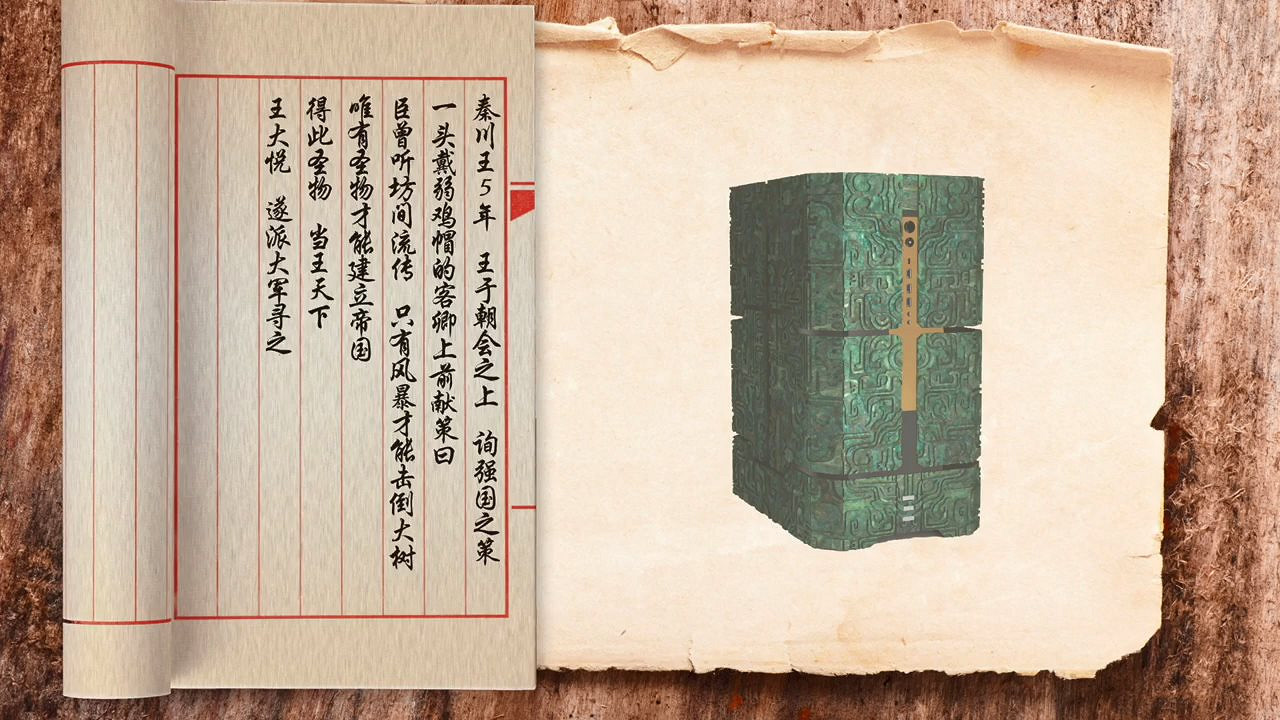 秦川王5年 王于朝会之上 询强国之策
一头戴弱鸡帽的客卿上前献策曰
臣曾听坊间流传 只有风暴才能击倒大树
唯有圣物才能建立帝国
得此圣物 当王天下
王大悦 遂派大军寻之